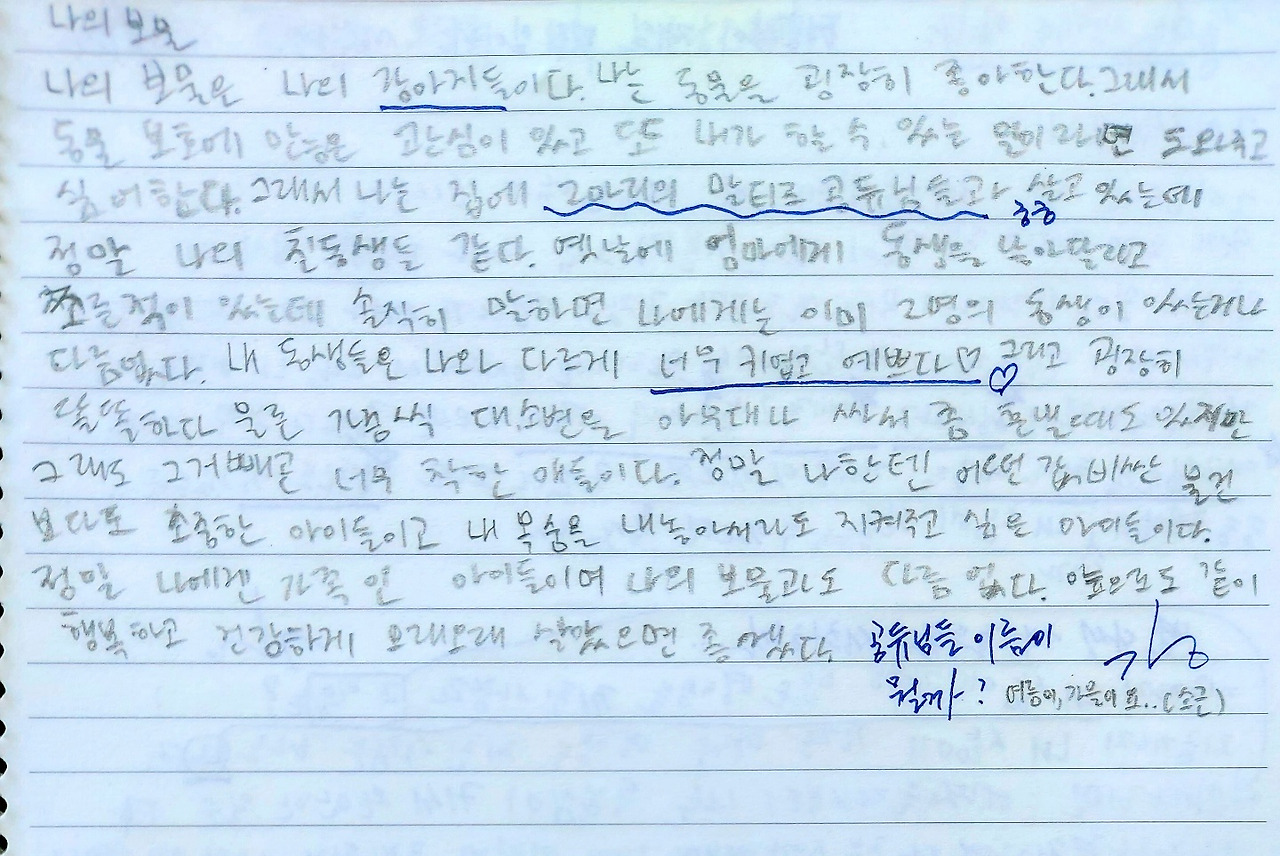 나의 보물
나의 보물은 나의 강아지들이다. 나는 동물을 굉장히 좋아한다. 그래서
동물 보호에 많은 관심이 있고 또 내가 할 수 있는 일이라면 도와주고
싶어한다. 그래서 나는 집에 2마리의 말티즈 공듀님들과 살고 있는데
ㅎㅎ
정말 나의 친동생들 같다. 옛날에 엄마에게 동생을 낳아달라고
조른적이 있는데 솔직히 말하면 나에게는 이미 2명의 동생이 있는거나
다름없다. 내 동생들은 나와 다르게 너무 귀엽고 예쁘다♡ 그리고 굉장히
♡
똘똘하다 물론 가끔씩 대소변을 아무대나 싸서 좀 혼낼때도 있지만
그래도 그거빼곤 너무 착한 애들이다. 정말 나한텐 어떤 값비싼 물건
보다도 소중한 아이들이고 내 목숨을 내놓아서라도 지켜주고 싶은 아이들이다.
정말 나에겐 가족인 아이들이며 나의 보물과도 다름 없다. 앞으로도 같이
행복하고 건강하게 오래오래 살았으면 좋겠다. 공듀님들 이름이
뭘까? 여름이, 가을이 요..(소근)